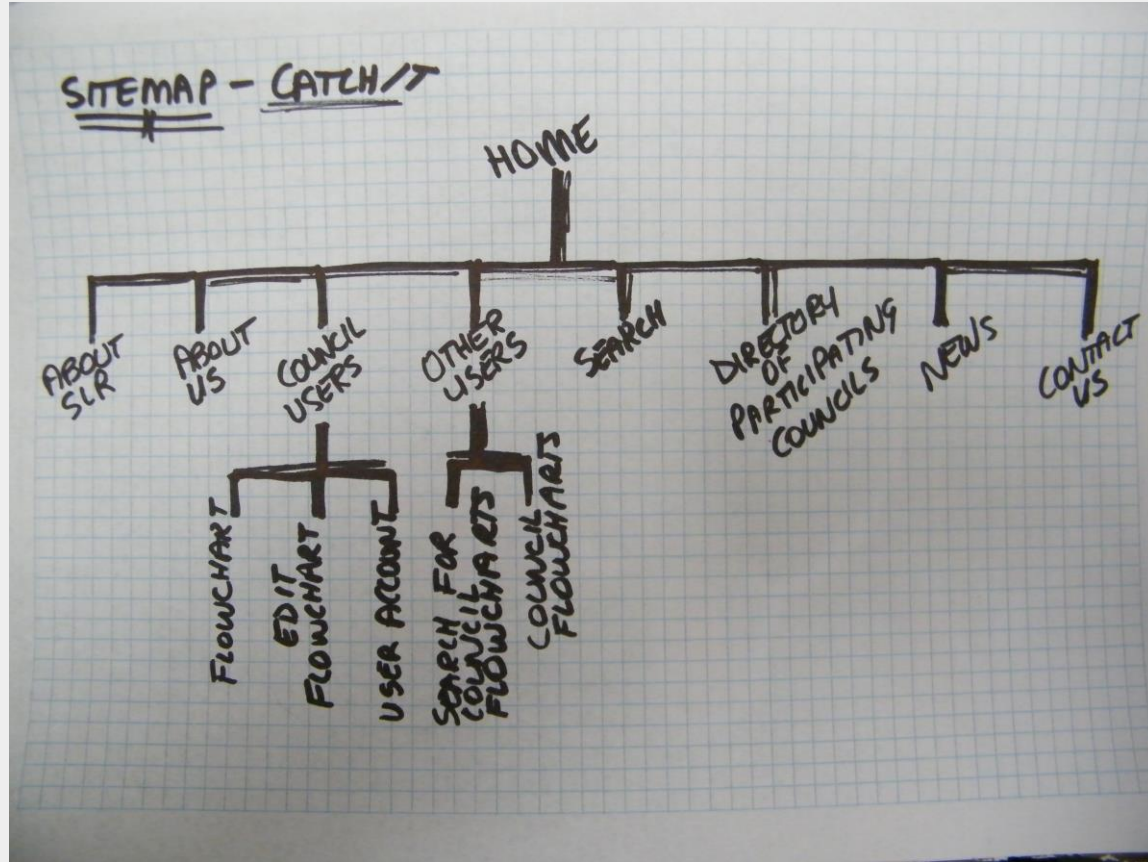 SITEMAP - CATCH/T
HOME
ABOUT
SLR
ABOUT
US
COUNCIL
USERS
OTHER
USERS
SEARCH
DIRECTORY
OF
PARTICIPATING
COUNCILS
NEWS
CONTACT
US
FLOWCHART
EDIT
FLOWCHART
USER ACCOUNT
SEARCH FOR
COUNCIL
FLOWCHARTS
COUNCIL
FLOWCHARTS